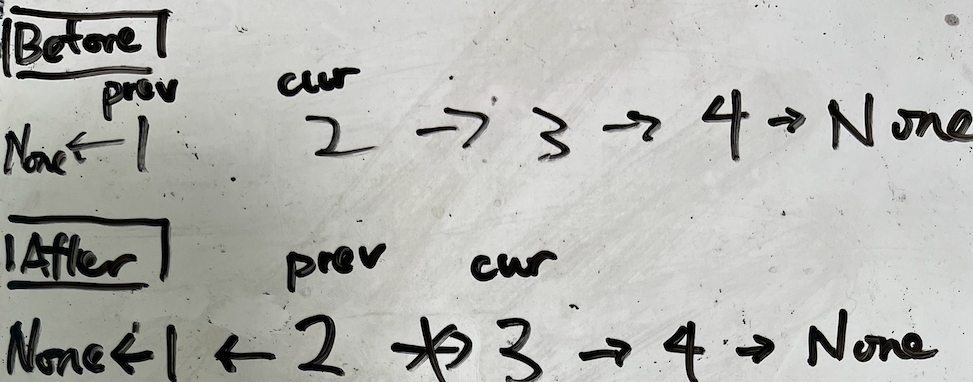 Before
prev cur
None ← 1 2 → 3 → 4 → None
After
prev cur
None ← 1 ← 2 → 3 → 4 → None